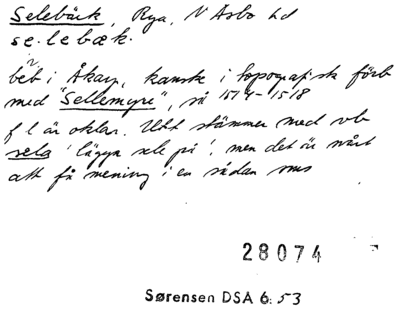 Selebäck, Rya, N Åsbo hd
se·lebæk·
beb i Åkarp, kanske i topografisk förb
med "Sellemyre", så 1514-1518
f l är oklar. Utt stämmer med vb
sela 'lägga sele på', men det är svårt
att få mening i en sådan sms
28074
Sørensen DSA 6:53